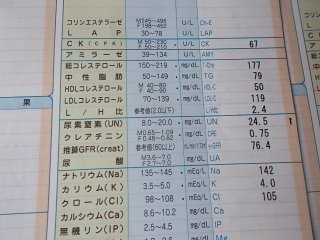 コリンエステラーゼ M245~495 F198~452 U/L Ch-E
LAP 30~78 U/L LAP
CK(CPK) M50~230 F50~210 U/L CK 67
アミラーゼ 39~134 U/L AMY
総コレステロール 150~219 mg/dL T-Cho 177
中性脂肪 50~149 mg/dL TG 79
HDLコレステロール M40~80 F40~90 mg/dL HDL-C 50
LDLコレステロール 70~139 mg/dL LDL-C 119
L/H比 参考値(2.0以下) L/H 2.4
果 尿素窒素(UN) 8.0~20.0 mg/dL UN 24.5
クレアチニン M0.65~1.09 F0.46~0.82 mg/dL CRE 0.75
推算GFR(creat) 参考値(60以上) e-GFR 76.4
尿酸 M3.6~7.0 F2.7~7.0 mg/dL UA
ナトリウム(Na) 135~145 mEq/L Na 142
カリウム(K) 3.5~5.0 mEq/L K 4.0
クロール(Cl) 98~108 mEq/L Cl 105
カルシウム(Ca) 8.6~10.2 mg/dL Ca
無機リン(IP) 2.5~4.5 mg/dL IP